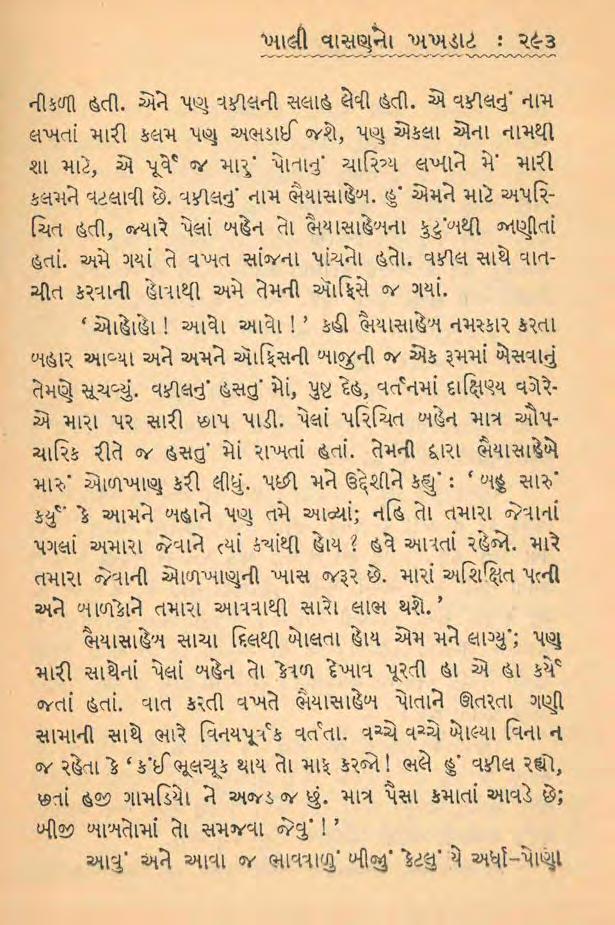 ખાલી વાસણનો ખખડાટ : ૨૯૩
નીકળી હતી. એને પણ વકીલની સલાહ લેવી હતી. એ વકીલનું નામ
લખતાં મારી કલમ પણ અભડાઈ જશે, પણ એકલા એના નામથી
શા માટે, એ પૂર્વે જ મારું પોતાનું ચારિત્ર્ય લખીને મેં મારી
કલમને વટલાવી છે. વકીલનું નામ ભૈયાસાહેબ. હું એમને માટે અપરિ-
ચિત હતી, જ્યારે પેલાં બહેન તો ભૈયાસાહેબના કુટુંબથી જાણીતાં
હતાં. અમે ગયાં તે વખત સાંજના પાંચનો હતો. વકીલ સાથે વાત-
ચીત કરવાની હોવાથી અમે તેમની ઑફિસે જ ગયાં.
‘ ઓહોહો ! આવો આવો ! ’ કહી ભૈયાસાહેબ નમસ્કાર કરતા
બહાર આવ્યા અને અમને ઑફિસની બાજુની જ એક રૂમમાં બેસવાનું
તેમણે સૂચવ્યું. વકીલનું હસતું મોં, પુષ્ટ દેહ, વર્તનમાં દાક્ષિણ્ય વગેરે-
એ મારા પર સારી છાપ પાડી. પેલાં પરિચિત બહેન માત્ર ઔપ-
ચારિક રીતે જ હસતું મોં રાખતાં હતાં. તેમની દ્વારા ભૈયાસાહેબે
મારું ઓળખાણ કરી લીધું. પછી મને ઉદ્દેશીને કહ્યું : ‘ બહુ સારું
કર્યું કે આમને બહાને પણ તમે આવ્યાં; નહિ તો તમારા જેવાનાં
પગલાં અમારા જેવાને ત્યાં ક્યાંથી હોય ? હવે આવતાં રહેજો. મારે
તમારા જેવાની ઓળખાણની ખાસ જરૂર છે. મારાં અશિક્ષિત પત્ની
અને બાળકોને તમારા આવવાથી સારો લાભ થશે. ’
ભૈયાસાહેબ સાચા દિલથી બોલતા હોય એમ મને લાગ્યું; પણ
મારી સાથેનાં પેલાં બહેન તો કેવળ દેખાવ પૂરતી હા એ હા કર્યે
જતાં હતાં. વાત કરતી વખતે ભૈયાસાહેબ પોતાને ઊતરતા ગણી
સામાની સાથે ભારે વિનયપૂર્વક વર્તતા. વચ્ચે વચ્ચે બોલ્યા વિના ન
જ રહેતા કે ‘ કંઈ ભૂલચૂક થાય તો માફ કરજો ! ભલે હું વકીલ રહ્યો,
છતાં હજી ગામડિયો ને અજડ જ છું. માત્ર પૈસા કમાતાં આવડે છે;
બીજી બાબતોમાં તો સમજવા જેવું ! ’
આવું અને આવા જ ભાવવાળું બીજું કેટલું યે અર્ધા-પોણા